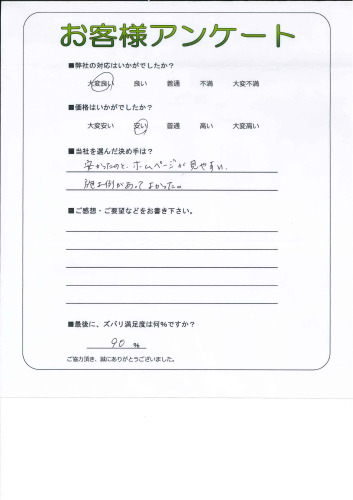 お客様アンケート
■弊社の対応はいかがでしたか？
大変良い 良い 普通 不満 大変不満
■価格はいかがでしたか？
大変安い 安い 普通 高い 大変高い
■当社を選んだ決め手は？
安かったのと、ホームページが見やすい。
施工例があってよかった。
■ご感想・ご要望などをお書き下さい。
■最後に、ズバリ満足度は何％ですか？
90 %
ご協力頂き、誠にありがとうございました。